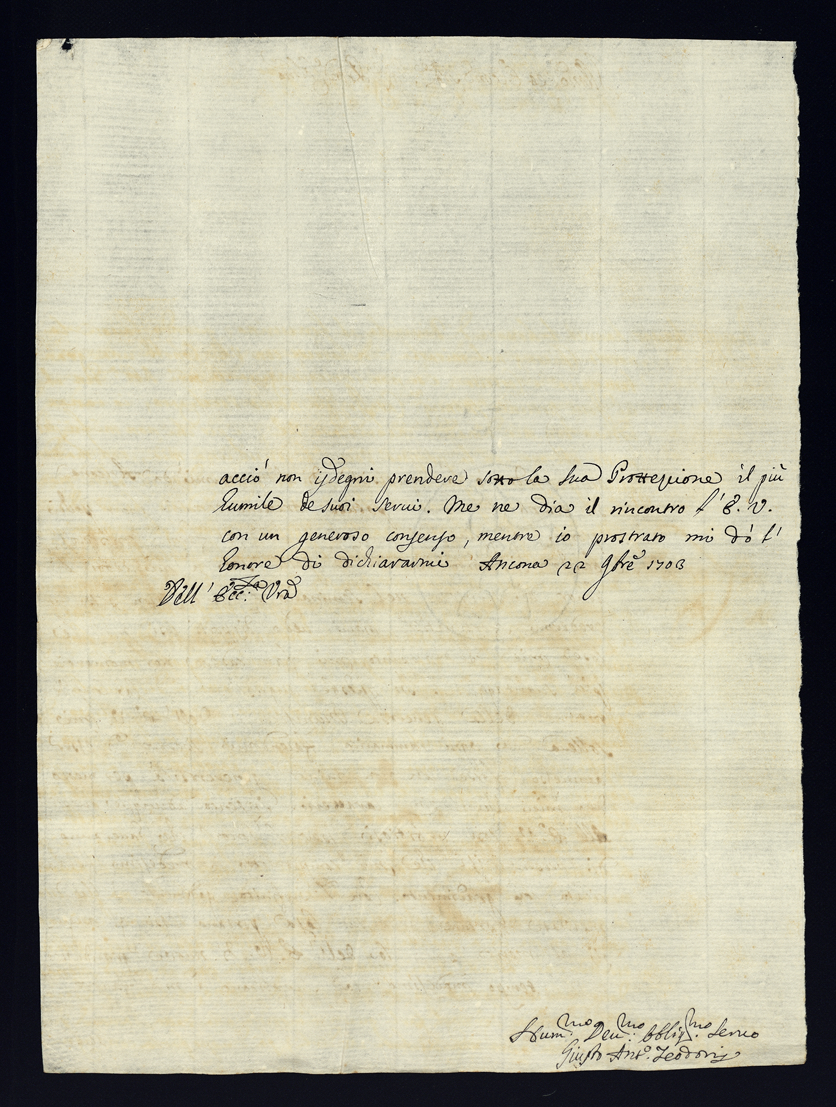 acciò non isdegni prendere sotto la sua Prottezione il più
humile de suoi servi. Me ne dia il rincontro l' E. V.
con un generoso consenso, mentre io prostrato mi dò l'
honore di dichiararmi Ancona 22 9bre 1703
Dell' Ecc.za Vra
Hum.mo Deu.mo Obblig.mo Seruo
Giusto Ant.o Teodorij